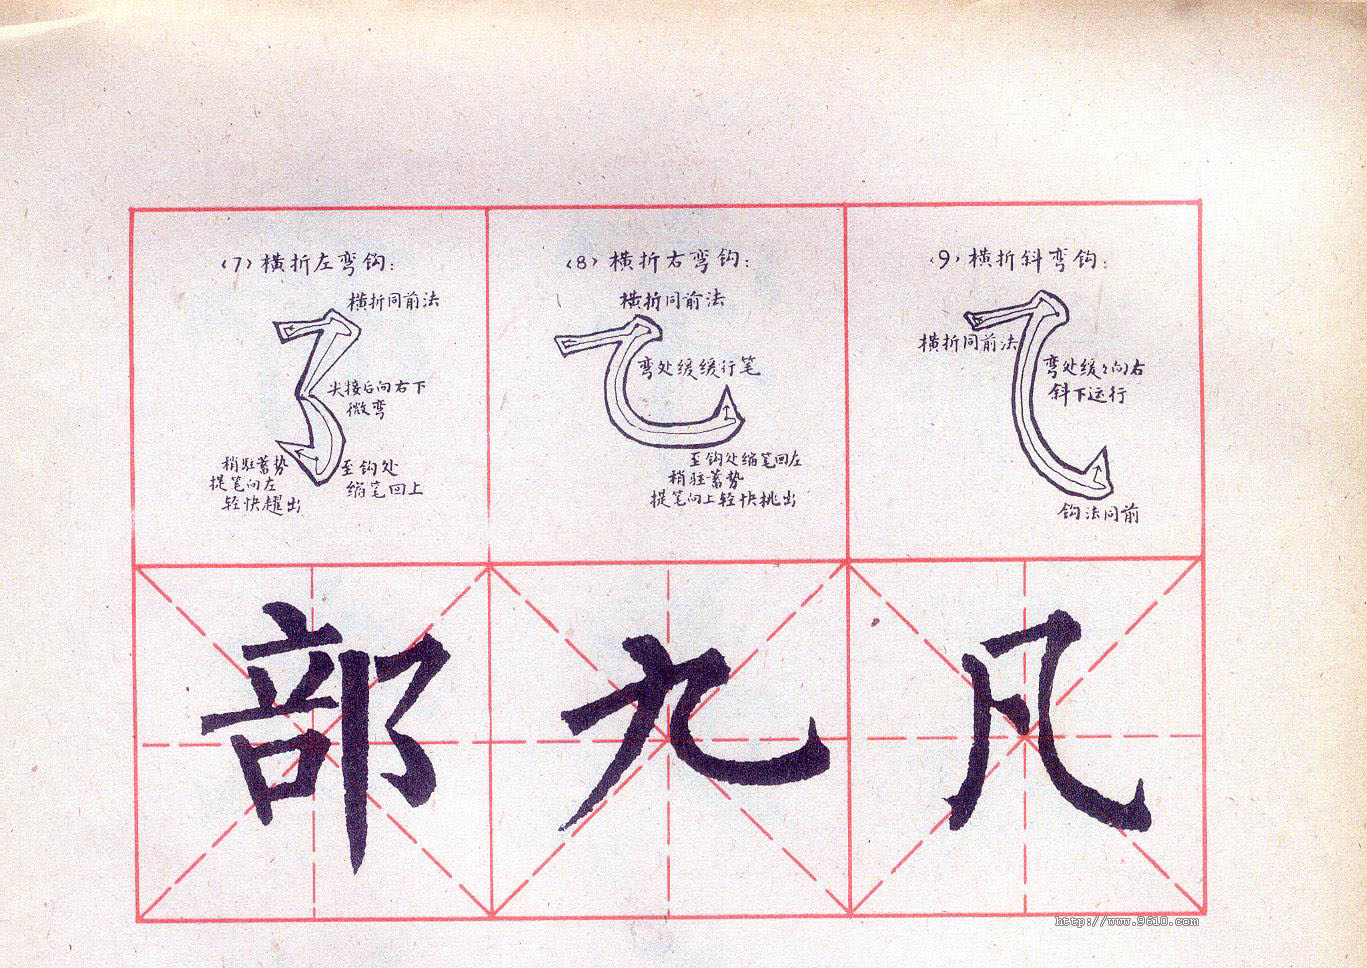 (7) 横折左弯钩:
横折同前法
尖接后向右下
微弯
稍驻蓄势
提笔向左
轻快趯出
至钩处
缩笔回上
(8) 横折右弯钩:
横折同前法
弯处缓缓行笔
至钩处缩笔回左
稍驻蓄势
提笔向上轻快挑出
(9) 横折斜弯钩:
横折同前法
弯处缓々向右
斜下运行
钩法同前
部 九 凡
http://www.9610.com